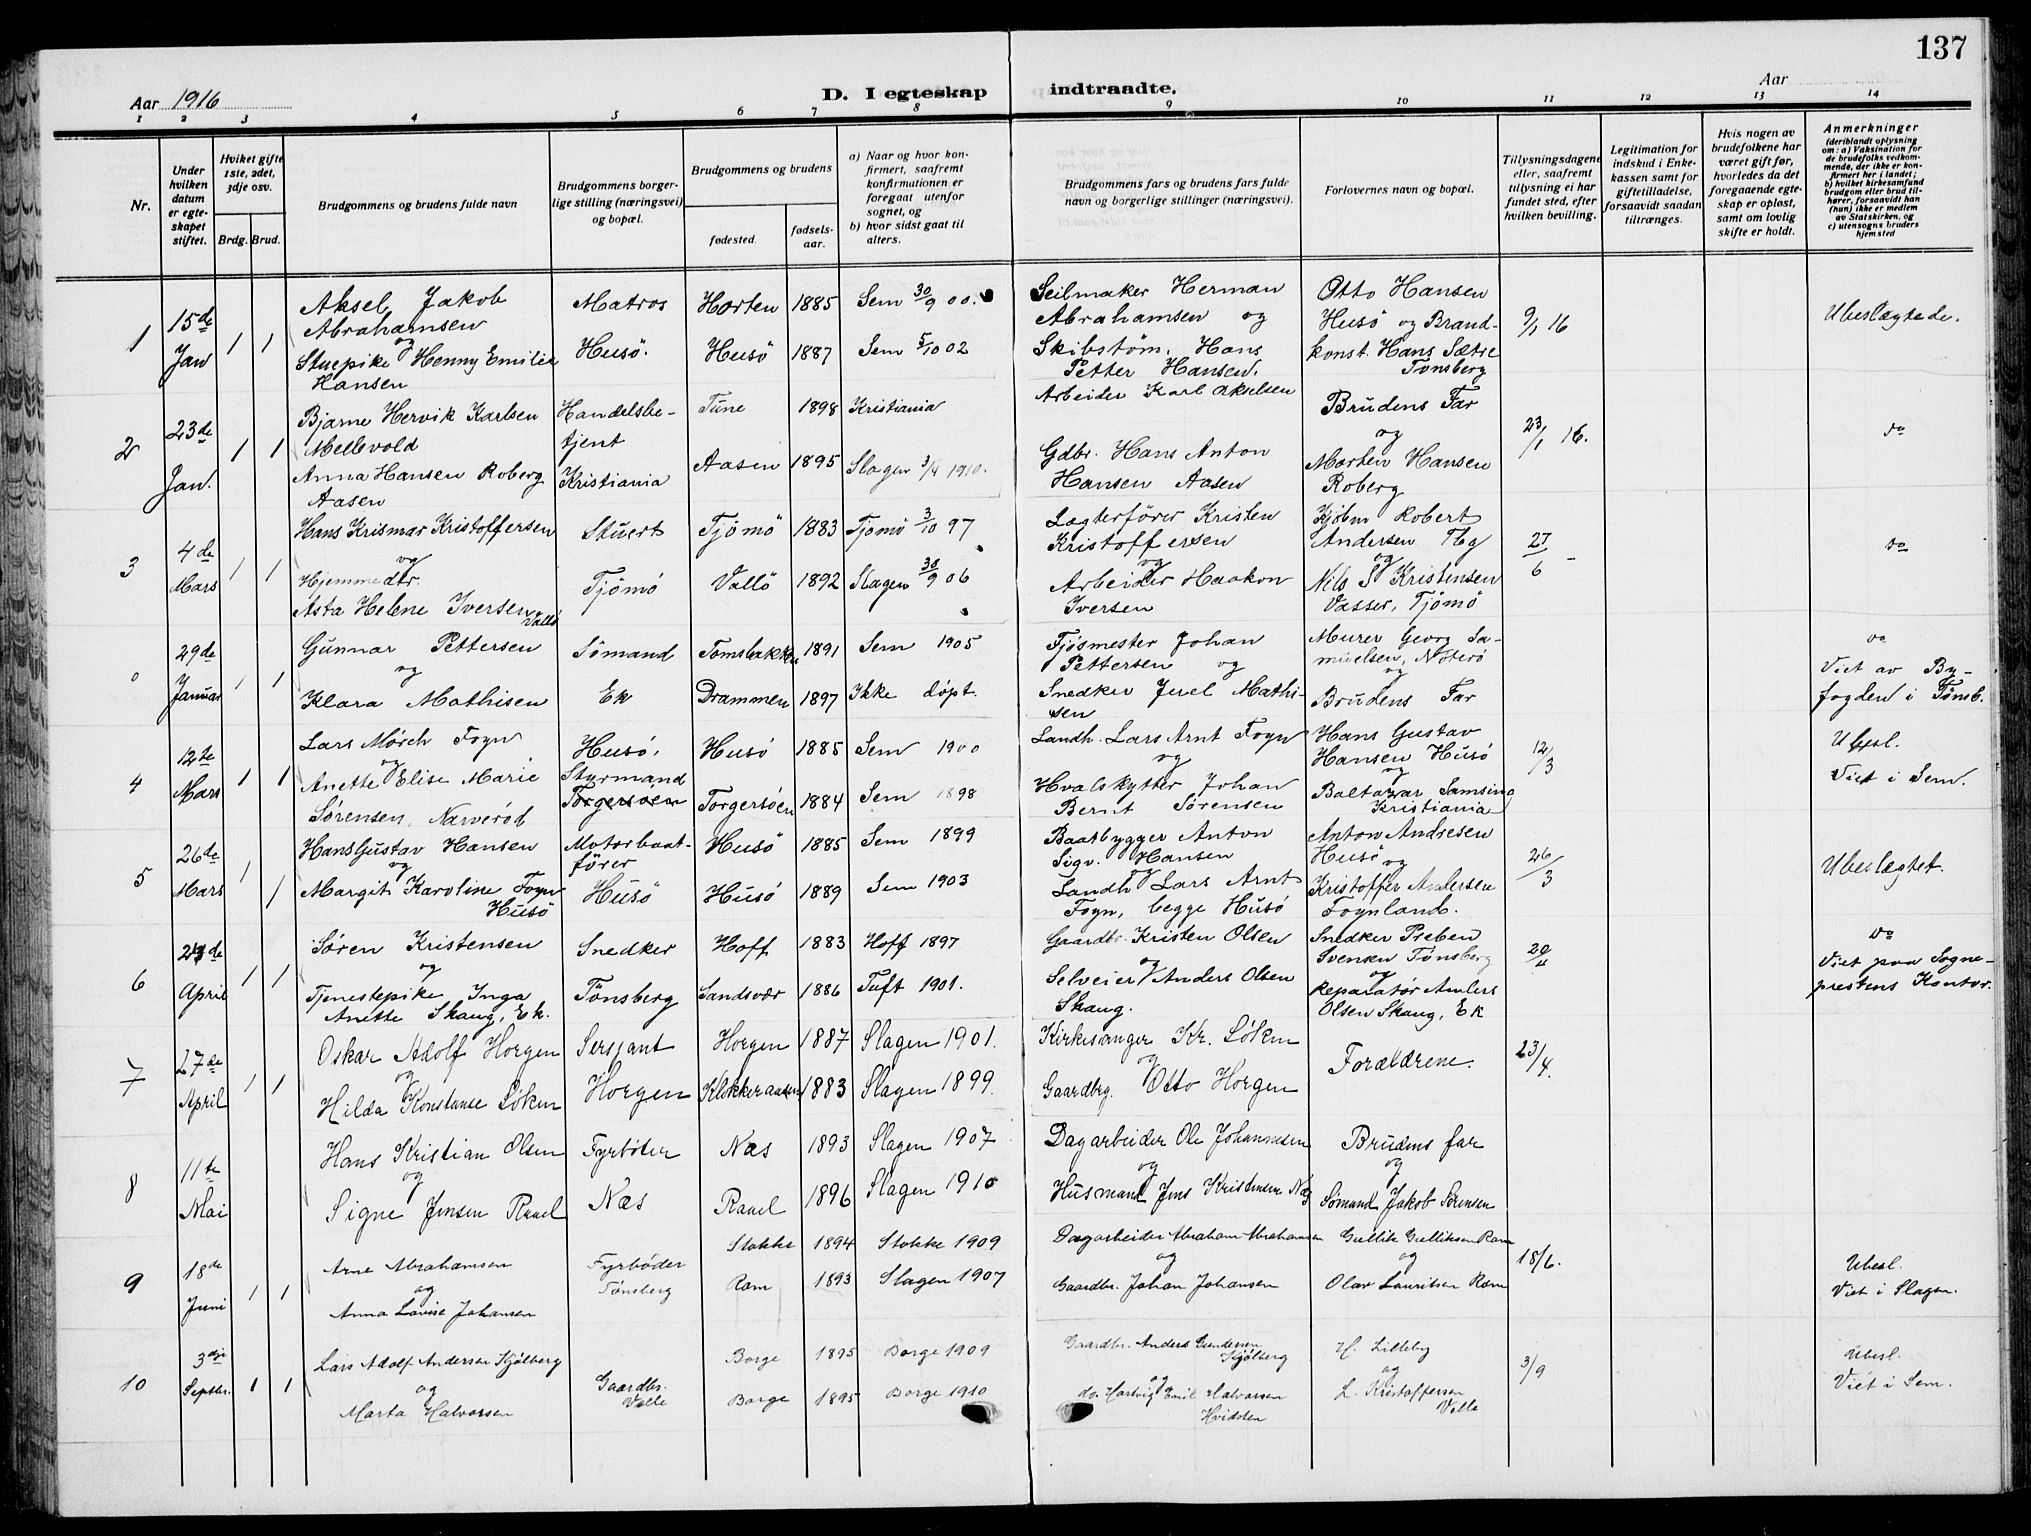 137
Aar 1916
D. I egteskap indtraadte.
Aar
1 2 3 4 5 6 7 8 9 10 11 12 13 14
Nr.
Under hvilken datum er egteskapet stiftet.
Hviket gifte 1ste, 2det, 3dje osv.
Brdg. Brud.
Brudgommens og brudens fulde navn
Brudgommens borgerlige stilling (næringsvei) og bopæl.
Brudgommens og brudens
fødested.
fødselsaar.
a) Naar og hvor konfirmert, saafremt konfirmationen er foregaat utenfor sognet, og
b) hvor sidst gaat til alters.
Brudgommens fars og brudens fars fulde navn og borgerlige stillinger (næringsvei).
Forlovernes navn og bopæl.
Tillysningsdagene eller, saafremt tillysning ei har fundet sted, efter hvilken bevilling.
Legitimation for indskud i Enkekassen samt for giftetilladelse, forsaavidt saadan tiltrænges.
Hvis nogen av brudefolkene har været gift før, hvorledes da det foregaaende egteskap er opløst, samt om lovlig skifte er holdt.
Anmerkninger
(deriblandt oplysning om: a) Vaksination for de brudefolks vedkommende, der ikke er konfirmert her i landet;
b) hvilket kirkesamfund brudgom eller brud tilhører, forsaavidt han (hun) ikke er medlem av Statskirken, og
c) utensogns bruders hjemsted
1 15de Jan 1 1 Aksel Jakob Abrahamsen Matros Horten 1885 Sem 30/9 00. Seilmaker Herman Abrahamsen og Otto Hansen Husö og Brand- 9/1 16 Ubeslægtede.
og Stuepike Henny Emilie Hansen Husö. Husö 1887 Sem 5/10 02 Skibstøm. Hans Petter Hansen. konst. Hans Sætre Tønsberg
2 23de Jan. 1 1 Bjarne Hervik Karlsen Mellevold Handelsbetjent Tune 1898 Kristiania Arbeider Karl Akselsen Brudens Far og 23/1 16. do
Anna Hansen Roberg Aasen Kristiania Aasen 1895 Slagen 3/4 1910. Gdbr. Hans Anton Hansen Aasen Morten Hansen Roberg
3 4de Mars 1 1 Hans Krismar Kristoffersen og Stuert Tjömö 1883 Tjömö 3/10 97 Lægterförer Kristen Kristoffersen og Kjöbm Robert Andersen Tbg og 27/6 - do
Hjemmedtr. Asta Helene Iversen Vallö Tjömö Vallö 1892 Slagen 30/9 06 Arbeider Haakon Iversen Nils S Kristensen Vasser, Tjömö
0 29de Januar 1 1 Gunnar Pettersen og Sömand Tomsbakken 1891 Sem 1905 Fjøsmester Johan Pettersen og Murer Georg Samuelsen, Nöterö og do
Klara Mathisen Ek Drammen 1897 Ikke döpt. Snedker Juel Mathisen Brudens Far Viet av Byfogden i Tønsb.
4 12te Mars 1 1 Lars Mörch Fogn og Husö, Styrmand Husö 1885 Sem 1900 Landh. Lars Arnt Fogn og Hans Gustav Hansen Husö og 12/3 Ubesl.
Anette Elise Marie Sørensen, Narverød Torgersøen Torgersøen 1884 Sem 1898 Hvalskytter Johan Bernt Sørensen Baltazar Samsing Kristiania Viet i Sem.
5 26de Mars 1 1 Hans Gustav Hansen og Motorbaatfører Husö 1885 Sem 1899 Baatbygger Anton Sigv. Hansen og Anton Andresen Husö og 26/3 Ubeslægtet.
Margit Karoline Fogn Husö Husö Husö 1889 Sem 1903 Landh Lars Arnt Fogn, begge Husö Kristoffer Andersen Foynland.
6 de April 1 1 Søren Kristensen og Snedker Hoff 1883 Hoff 1897 Gaardbr. Kristen Olsen og Snedker Preben Svensen Tönsberg og 20/4 do
Tjenestepike Inga Anette Skaug, Ek. Tönsberg Sandsvær 1886 Tuft 1901. Selveier Anders Olsen Skaug. Reparatør Anders Olsen Skaug, Ek Viet paa Sogneprestens Kontor.
7 27de April 1 1 Oskar Adolf Horgen og Sersjant Horgen 1887 Slagen 1901. Kirkesanger Kr. Löken og Forældrene. 23/4.
Hilda Konstanse Löken Horgen Klokkeraasen 1883 Slagen 1899. Gaardbrg. Otto Horgen
8 11te Mai Hans Kristian Olsen og Fyrbøter Næs 1893 Slagen 1907 Dagarbeider Ole Johannesen og Brudens far og
Signe Jensen Ravel Næs Ravel 1896 Slagen 1910 Husmand Jens Kristensen Næs Sømand Jakob Sørensen
9 18de Juni 1 1 Arne Abrahamsen og Fyrbøder Stokke 1894 Stokke 1909 Dagarbeider Abraham Abrahamsen og Gullik Gulliksen Ram og 18/6. Ubesl.
Anna Lovise Johansen Tønsberg Ram 1893 Slagen 1907 Gaardbr. Johan Johansen Olav Lauritsen Ram Viet i Slagen.
10 3dje Septbr. 1 1 Lars Adolf Andersen Kjølberg og Gaardbr. Borge 1895 Borge 1909 Gaardbr. Anders Gundersen Kjølberg og H. Lilleby og 3/9 Ubesl.
Marta Halvorsen Valle Borge 1895 Borge 1910 do. Hartvig Emil Halvorsen Hvidsten L. Kristoffersen Valle Viet i Sem.